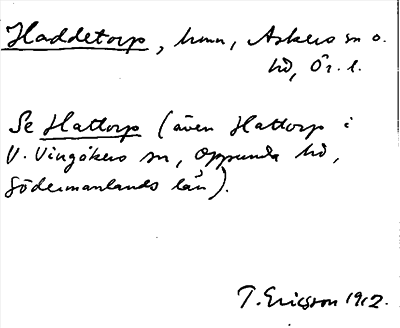 Haddetorp, hmn, Askers sn o.
hd, Ör. l.
Se Hattorp (även Hattorp i
V. Vingåkers sn, Oppunda hd,
Södermanlands län).
T. Ericsson 1912.